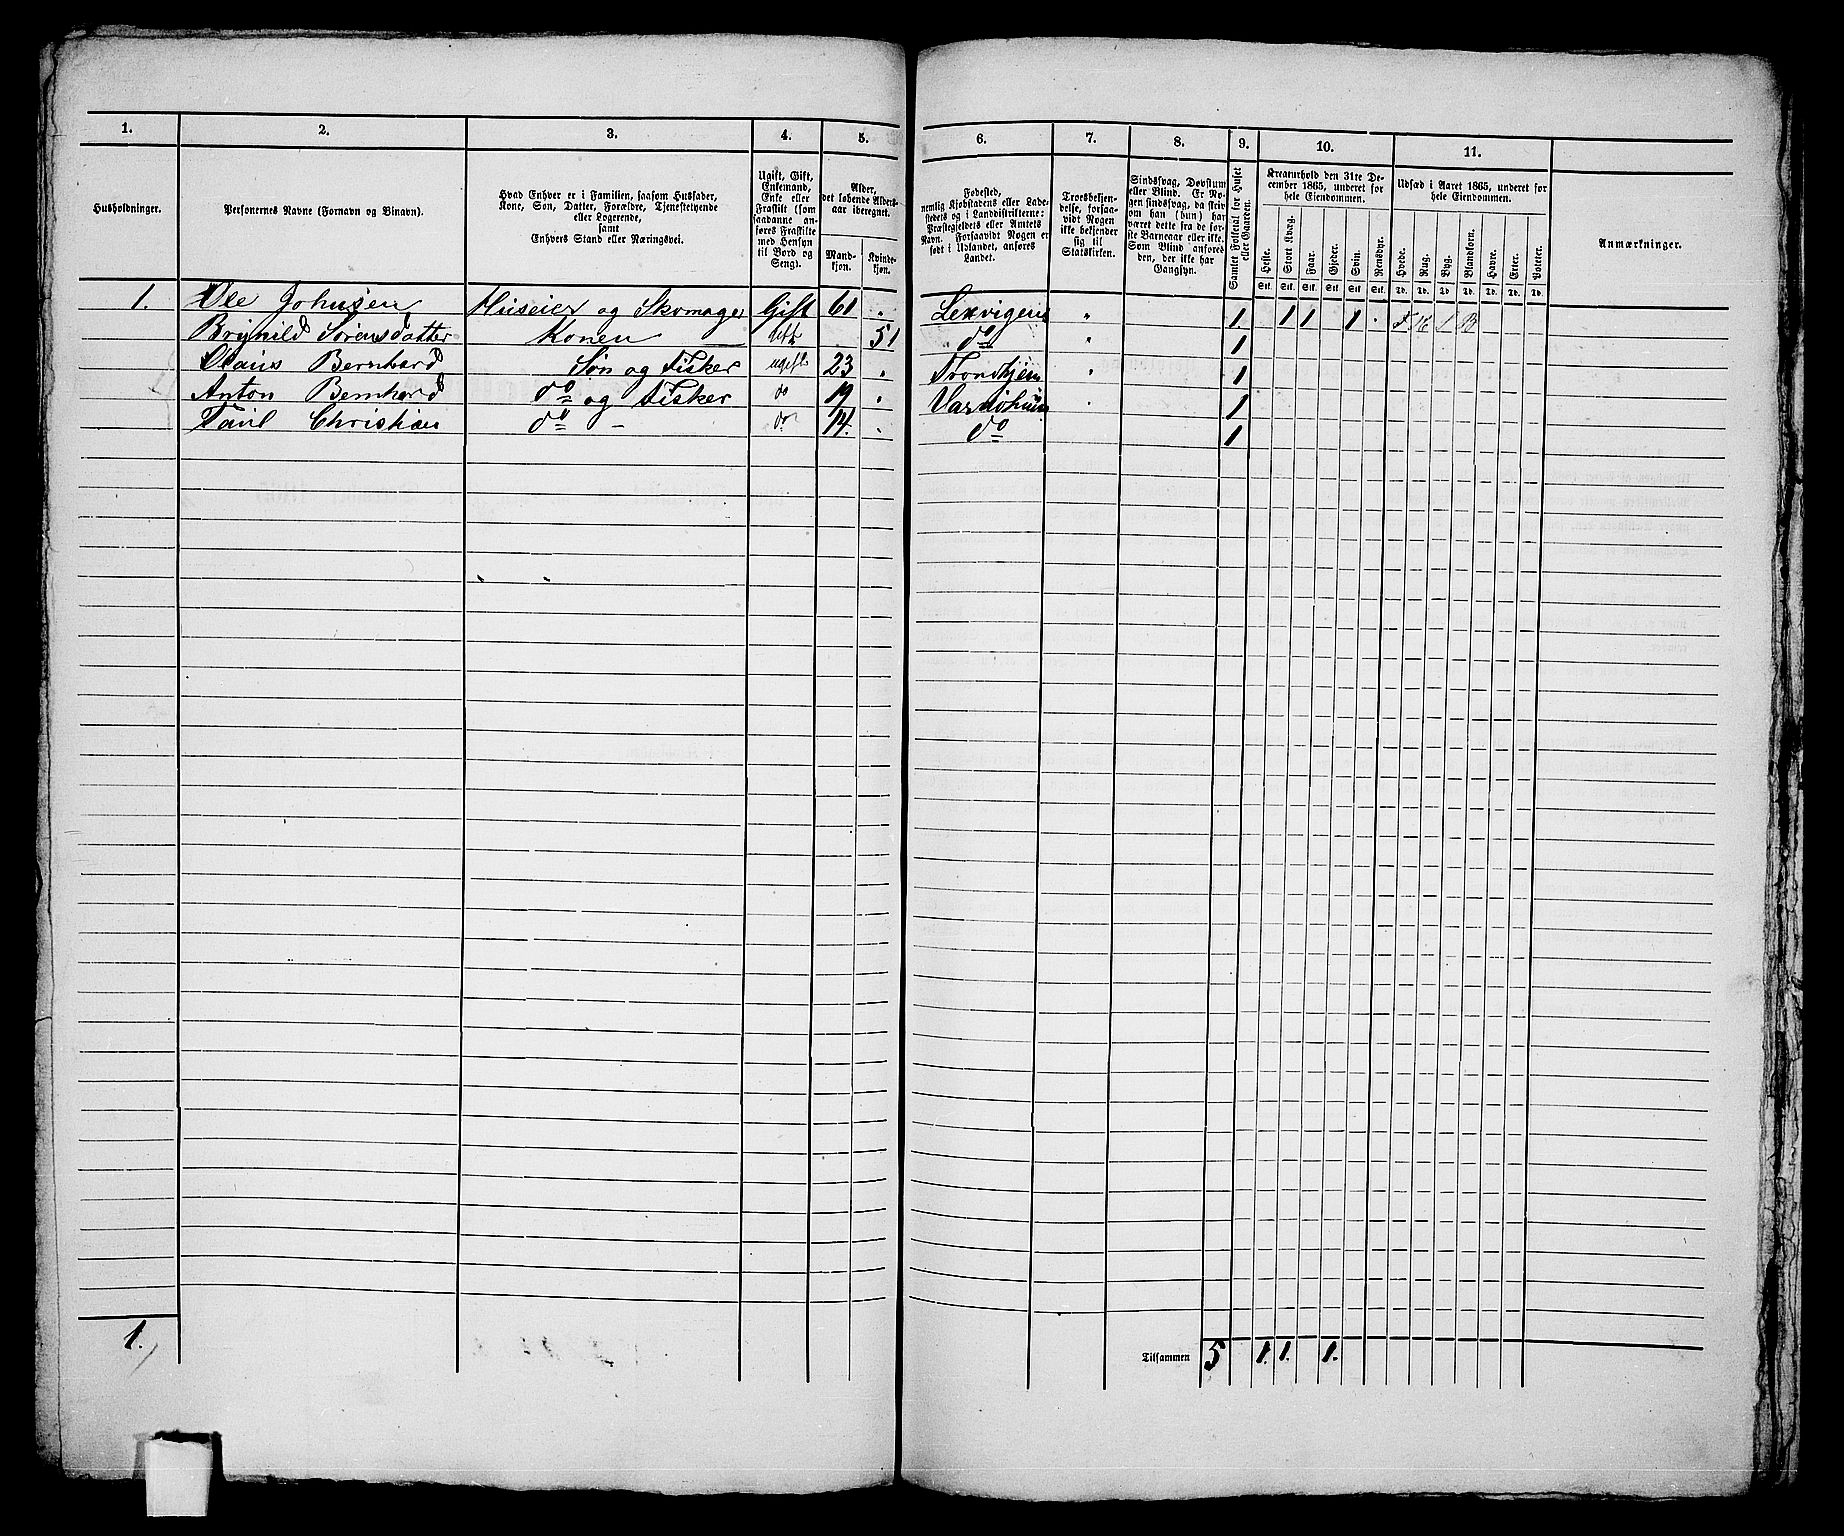 1. 2. 3. 4. 5. 6. 7. 8. 9. 10. 11.
Husholdninger.
Personernes Navne (Fornavn og Binavn).
Hvad Enhver er i Familien, saasom Husfader,
Kone, Søn, Datter, Forældre, Tjenestetyende
eller Logerende,
samt
Enhvers Stand eller Næringsvei.
Ugift, Gift,
Enkemand,
Enke eller
Fraskilt (som
saadanne an-
føres Fraskilte
med Hensyn
til Bord og
Seng).
Alder,
det løbende Alders-
aar iberegnet.
Mand-
kjøn.
Kvinde-
kjøn.
Fødested,
nemlig Kjøbstadens eller Lade-
stedets og i Landdistrikterne:
Præstegjeldets eller Amtets
Navn. Forsaavidt Nogen er
født i Udlandet, anføres
Landet.
Troesbekjen-
delse, forsaa-
vidt Nogen
ikke bekjender
sig til
Statskirken.
Sindssvag, Døvstum
eller Blind. Er No-
gen sindssvag, da skriv
om han (hun) har
været dette fra de før-
ste Barneaar eller ikke.
Som Blind anføres
den, der ikke har
Gangsyn.
Samlet Folketal for Huset
eller Gaarden.
Kreaturhold den 31te De-
cember 1865, underet for
hele Eiendommen.
Heste. Stort Kvæg. Faar. Gjeder. Svin. Rensdyr.
Stk. Stk. Stk. Stk. Stk. Stk.
Udsæd i Aaret 1865, underet for
hele Eiendommen.
Hvede. Rug. Byg. Blandkorn. Havre. Erter. Poteter.
Td. Td. Td. Td. Td. Td. Td.
Anmærkninger.
1. Ole Johnsen Huseier og Skomager Gift 61 " Lexvigen " 1 1 1 1
Brynild Sørensdatter Konen Gift 51 do " 1
Claus Bernhard Søn og Fisker ugift 23 " Trondhjem " 1
Anton Bernhard do og Fisker do 19 " Vardøhuus 1
Paul Christian do - do 14. " do 1
1.
Tilsammen 5 1. 1. 1.